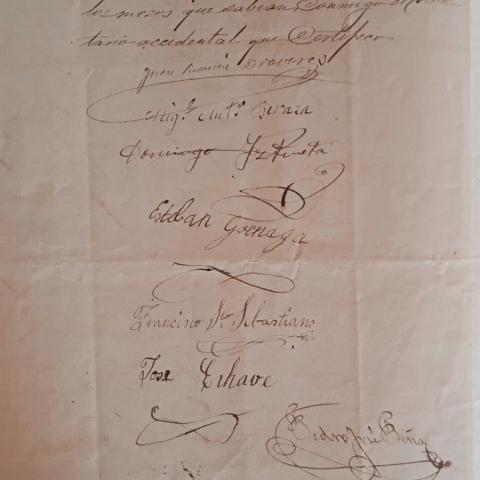 los mesos que sabian conmigo el
tario accidental que Certifico
Juan Ramón
Mig.l Ant.o Beraza
Domingo Iztueta
Esteban Goenaga
Francisco Sn Sebastian
José Echave
Pedro José Peña